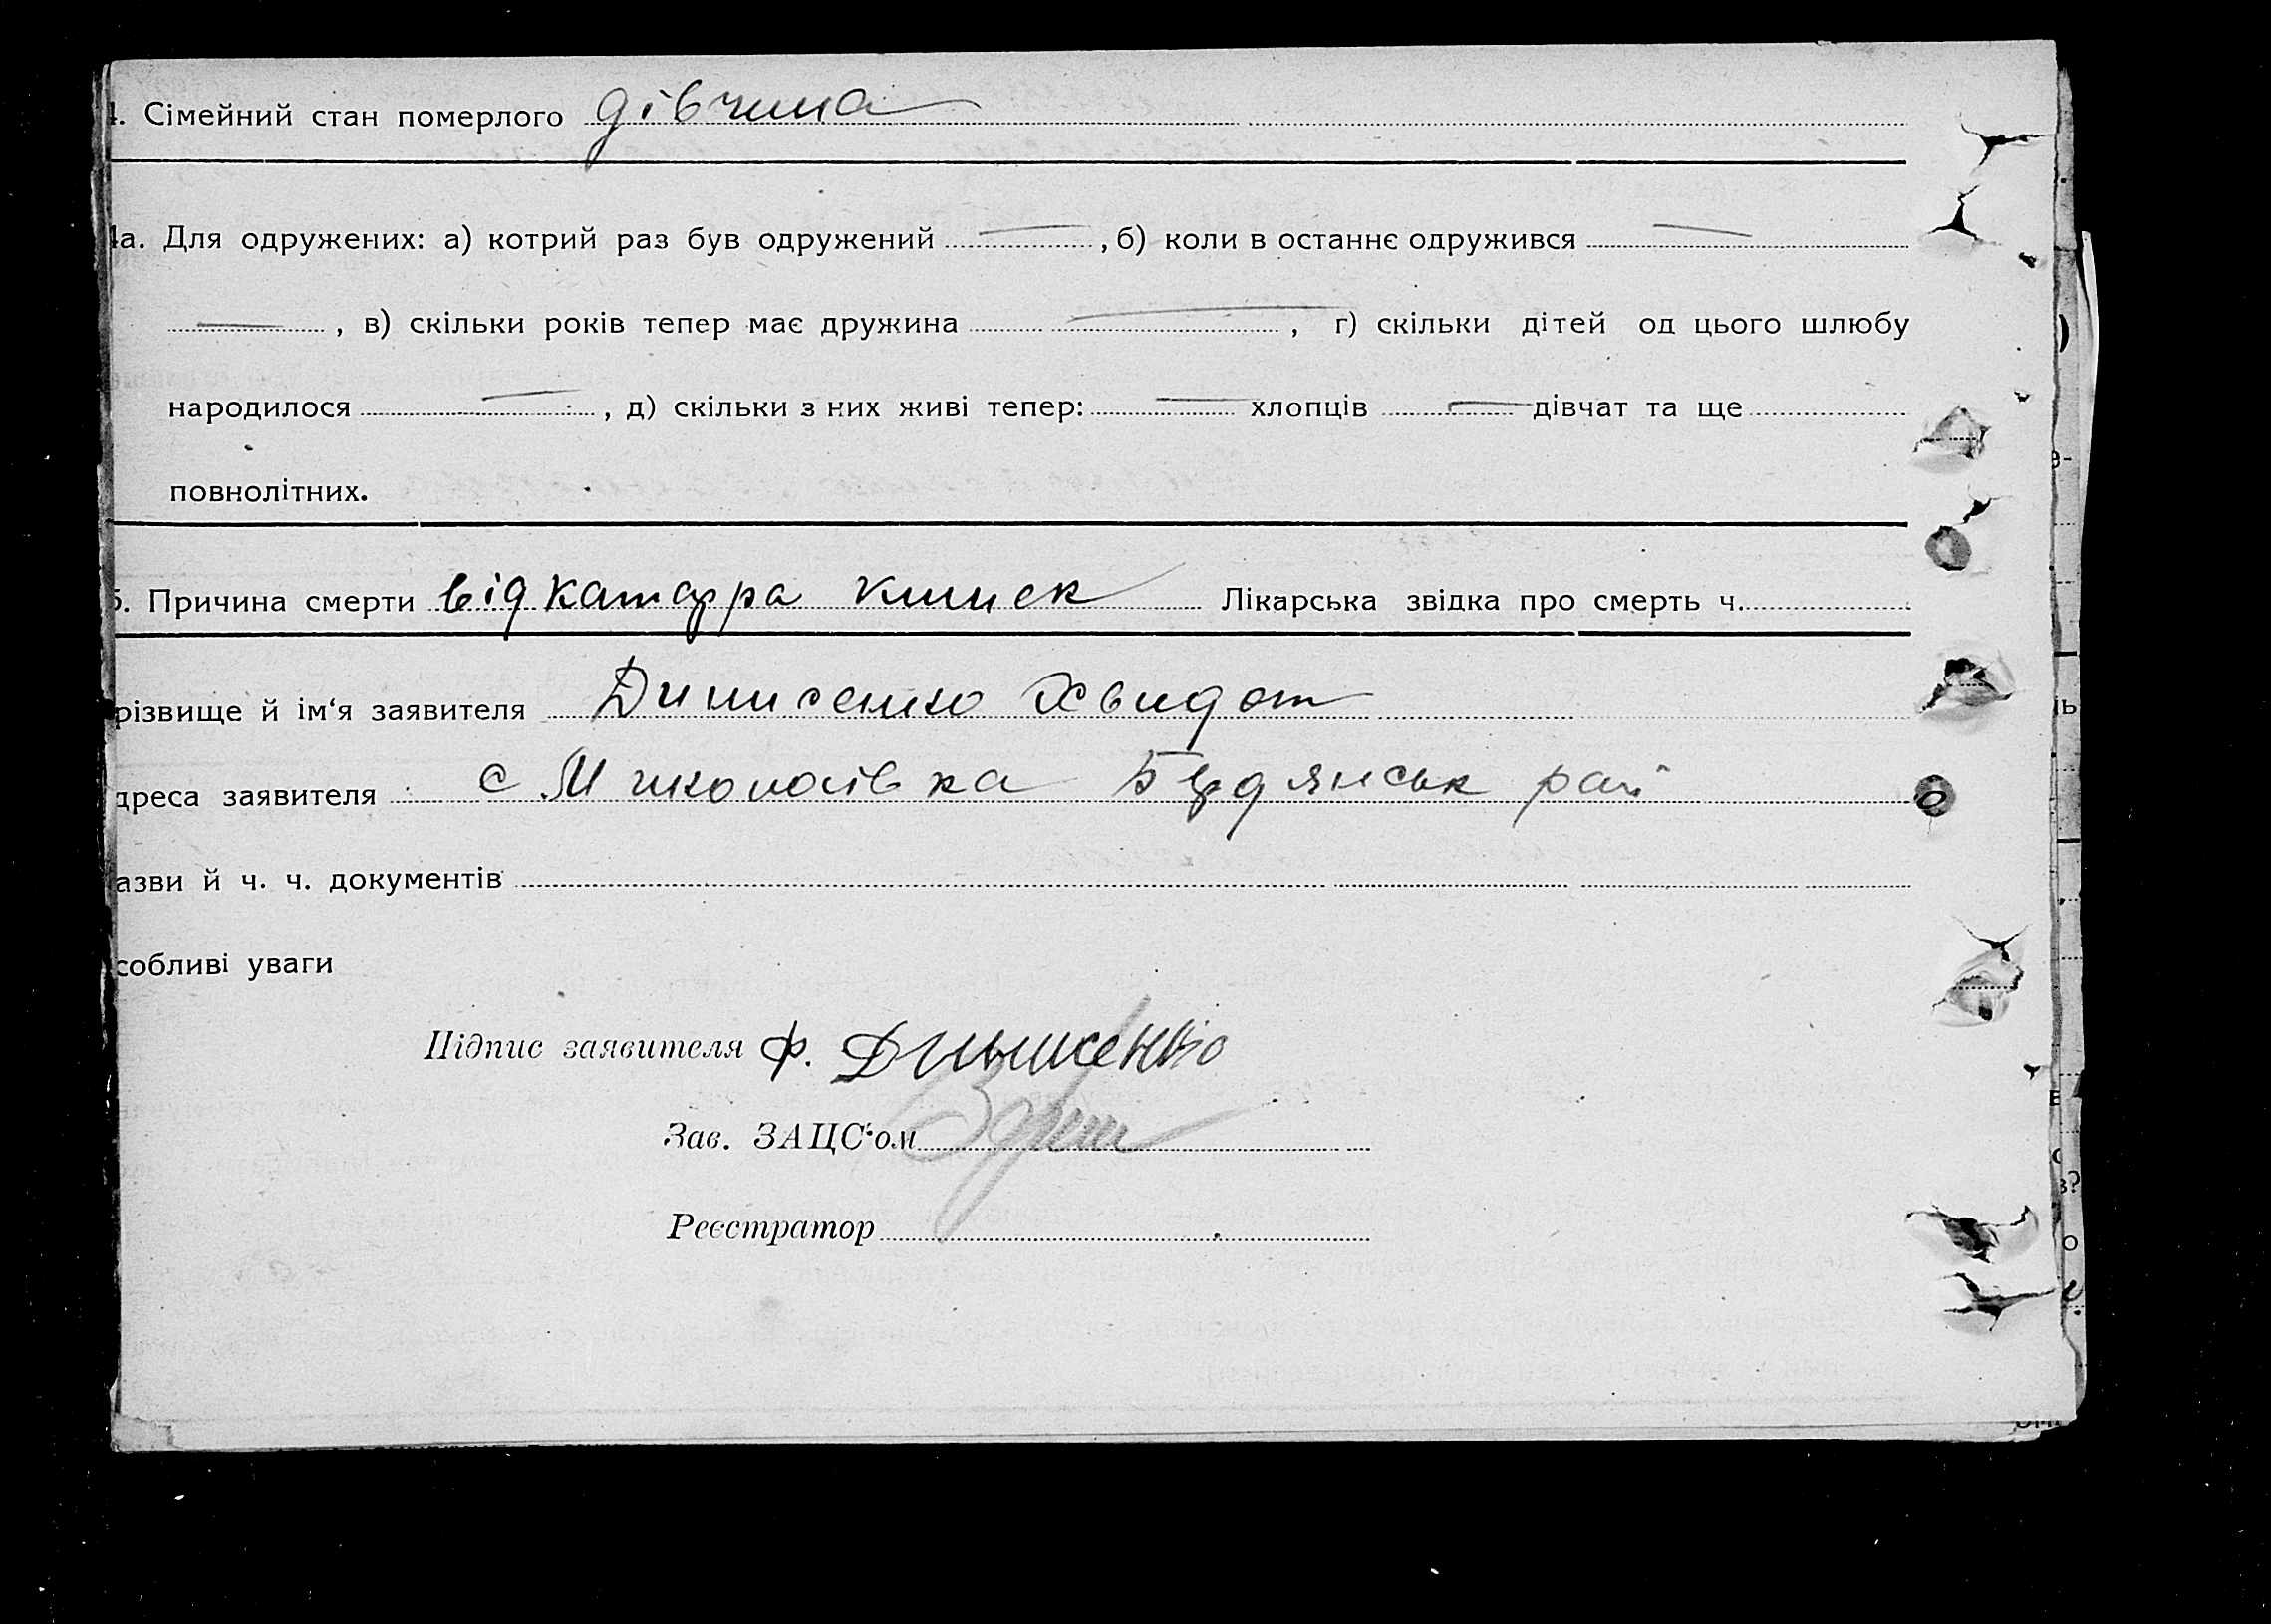 4. Сімейний стан померлого дівчина
4а. Для одружених: а) котрий раз був одружений — , б) коли в останнє одружився —
— , в) скільки років тепер має дружина — , г) скільки дітей од цього шлюбу
народилося — , д) скільки з них живі тепер: — хлопців — дівчат та ще
повнолітних.
5. Причина смерти від катарра кишек Лікарська звідка про смерть ч.
різвище й ім‘я заявителя Динисенко Хведот
дреса заявителя с Миколаївка Бердянськ рай
азви й ч. ч. документів
собливі уваги
Підпис заявителя Ф. Динисенко
Зав. ЗАЦС‘ом
Реєстратор